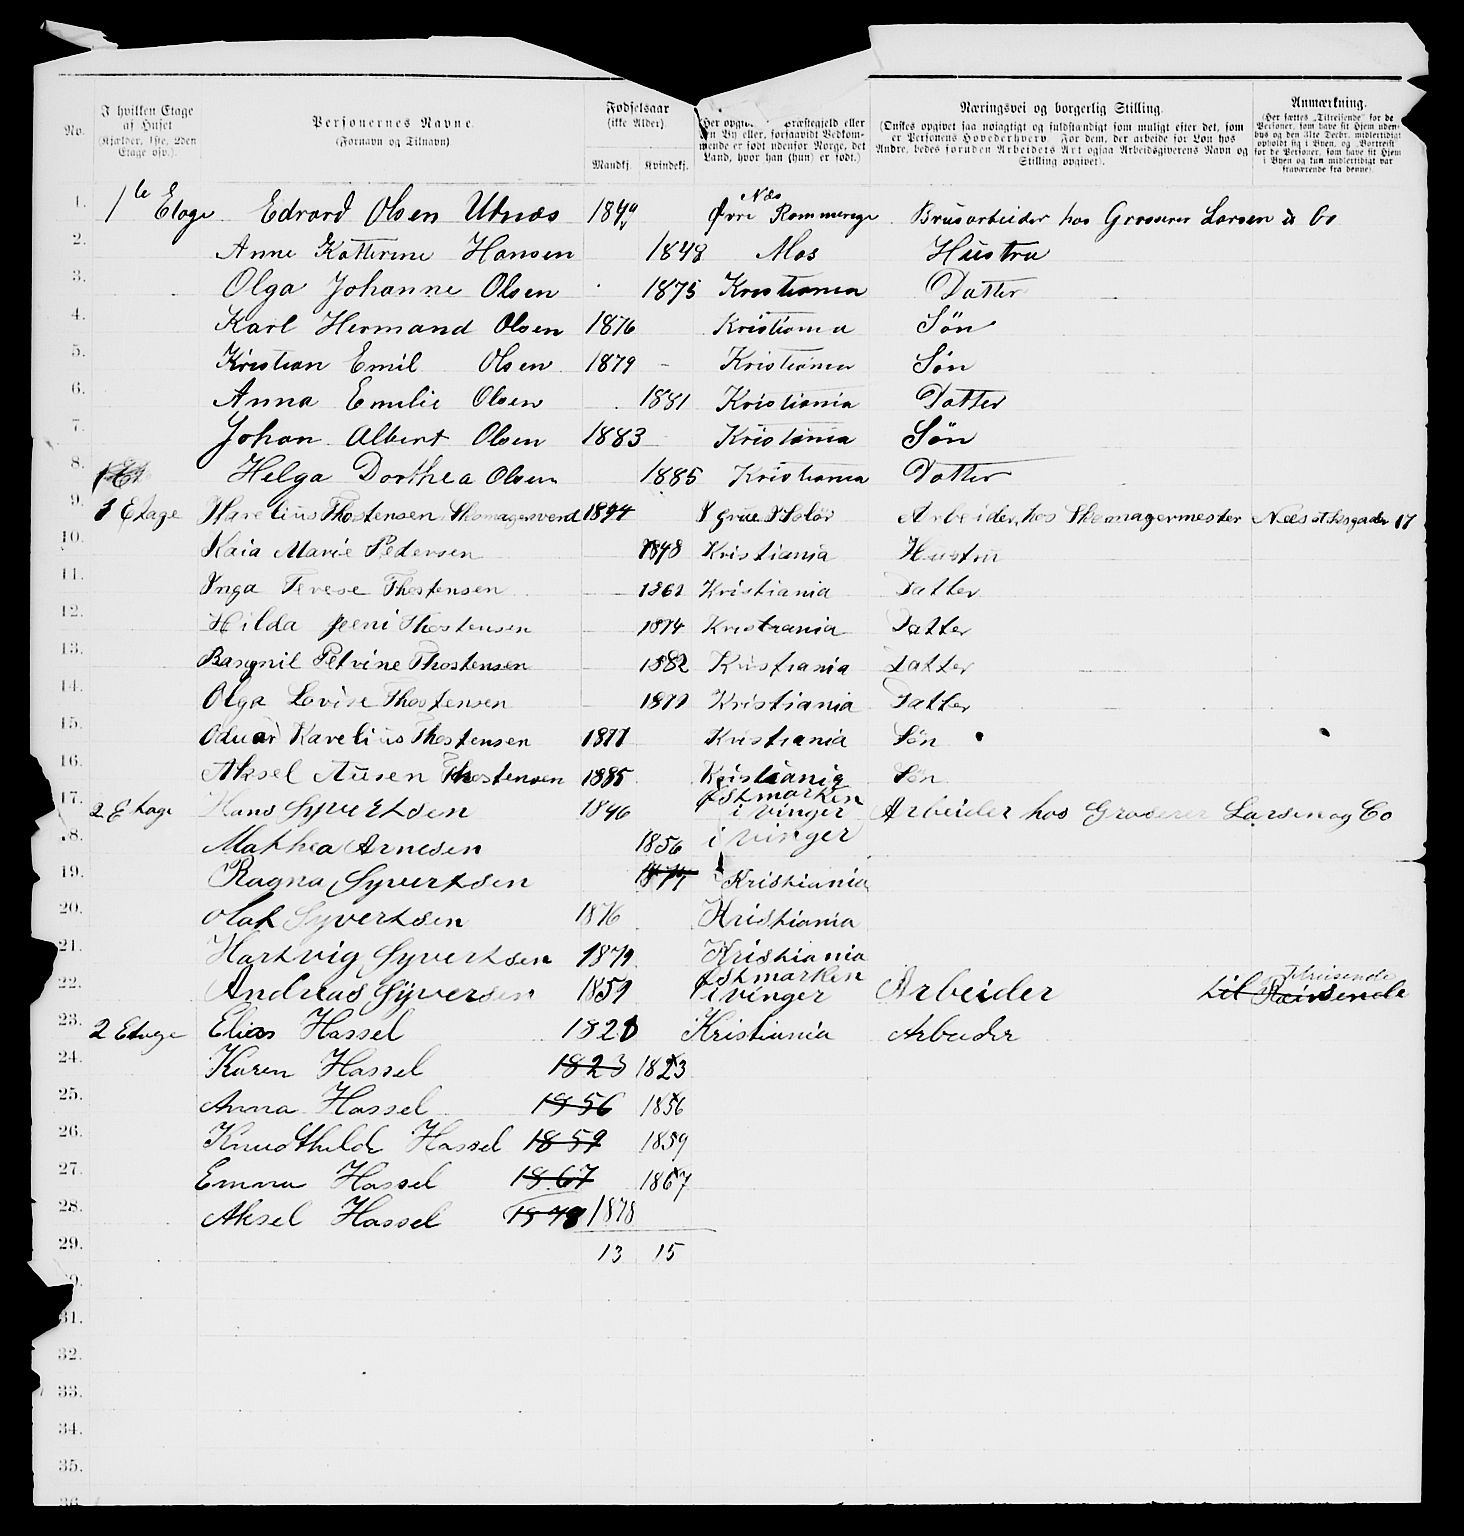 No. I hvilken Etage af Huset (Kjælder, 1ste, 2den Etage osv.). Personernes Navne. (Fornavn og Tilnavn). Fødselsaar (ikke Alder). Mandkj. Kvindekj. (Her opgiv Præstegjeld eller en By eller, forsaavidt Vedkommende er født udenfor Norge, det Land, hvor han (hun) er født.) Næringsvei og borgerlig Stilling. (Ønskes opgivet saa nøiagtigt og fuldstændigt som muligt efter det, som er Personens Hovederhverv. For dem, der arbeide for Løn hos Andre, bedes foruden Arbeidets Art ogsaa Arbeidsgiverens Navn og Stilling opgivet). Anmærkning. (Her sættes „Tilreisende" for de Personer, som have sit Hjem udenbys og den 31te Decbr. midlertidigt opholdt sig i Byen, og „Bortreist" for de Personer, som have sit Hjem i Byen og kun midlertidigt var fraværende fra denne).
1. 1te Etage Edvard Olsen Utnæs 1849 Næs Øvre Rommerege Brusarbeider hos Grosserer Larsen & Co
2. Anne Katterine Hansen 1848 Mos Hustru
3. Olga Johanne Olsen 1875 Kristiania Datter
4. Karl Hermand Olsen 1876 Kristiania Søn
5. Kristian Emil Olsen 1879 Kristiania Søn
6. Anna Emilie Olsen 1881 Kristiania Datter
7. Johan Albert Olsen 1883 Kristiania Søn
8. 1 Et Helga Dorthea Olsen 1885 Kristiania Datter
9. 1 Etage Karelius Thostensen Skomagersvend 1844 I grue I Solør Arbeider hos Skomagermester Næs 17
10. Kaia Marie Pedersen 1848 Kristiania Hustru
11. Inga Terese Thostensen Kristiania Datter
12. Hilda Jeeni Thostensen 1874 Kristiania Datter
13. Bargnil Petrine Thostensen 1882 Kristiania Datter
14. Olga Lovise Thostensen Kristiania Datter
15. Oduar Karelius Thostensen 1877 Kristiania Søn
16. Aksel Ausen Thostensen 1885 Kristiania Søn
17. 2 Etage Hans Syvertsen 1846 Østmarken i vinger Arbeider hos Groserer Larsen og Co
18. Mathea Arnesen 1856 i vinger
19. Ragna Syvertsen 1877 Kristiania
20. Olaf Syvertsen 1876 Kristiania
21. Hartvig Syvertsen 1879 Kristiania
22. Andreas Syversen 1859 Østmarken i vinger Arbeider til Reisende Tilreisende
23. 2 Etage Elias Hassel 1828 Kristiania Arbeider
24. Karen Hassel 1823 1823
25. Anna Hassel 1856 1856
26. Knudthilde Hassel 1859 1859
27. Emma Hassel 1867 1867
28. Aksel Hassel 1878 1878
29. 13 15
31.
32.
33.
34.
35.
36